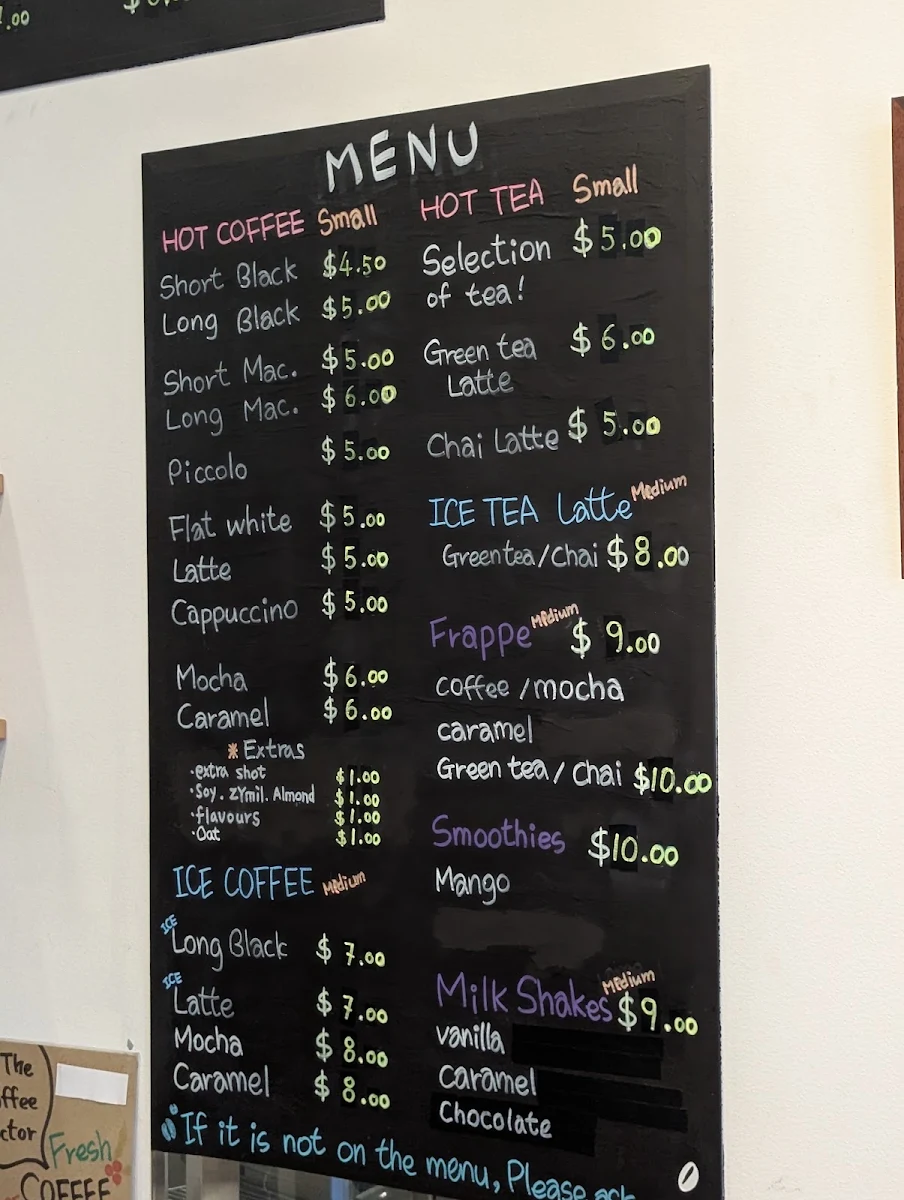 MENU
HOT COFFEE Small
Short Black $4.50
Long Black $5.00
Short Mac. $5.00
Long Mac. $6.00
Piccolo $5.00
Flat white $5.00
Latte $5.00
Cappuccino $5.00
Mocha $6.00
Caramel $6.00
* Extras
·extra shot $1.00
·Soy. ZYmil. Almond $1.00
·flavours $1.00
·Oat $1.00
ICE COFFEE Medium
ICE Long Black $7.00
ICE Latte $7.00
Mocha $8.00
Caramel $8.00
HOT TEA Small
Selection $5.00
of tea!
Green tea $6.00
Latte
Chai Latte $5.00
ICE TEA Latte Medium
Green tea/Chai $8.00
Frappe Medium $9.00
coffee /mocha
caramel
Green tea/Chai $10.00
Smoothies $10.00
Mango
Milk Shakes Medium $9.00
vanilla
Caramel
Chocolate
If it is not on the menu, Please ask
The
Fresh
COFFEE